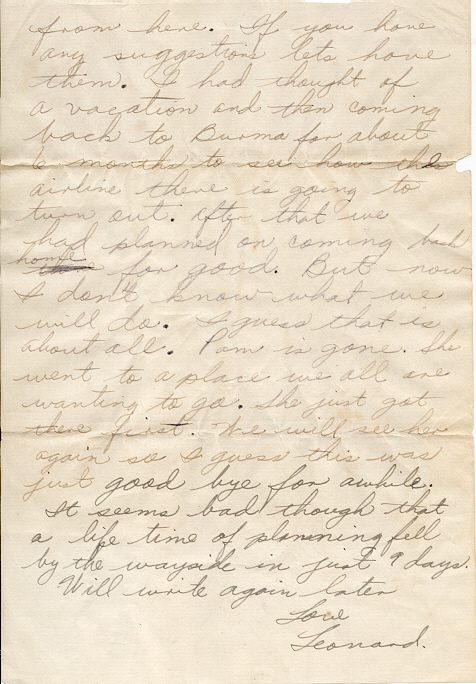 from here. If you have
any suggestions lets have
them. I had thought of
a vacation and then coming
back to Burma for about
6 months to see how the
airline there is going to
turn out. After that we
had planned on coming back
home for good. But now
I don't know what we
will do. I guess that is
about all. Pam is gone. She
went to a place we all are
wanting to go. She just got
there first. We will see her
again so I guess this was
just good bye for awhile.
It seems bad though that
a life time of planning fell
by the wayside in just 9 days.
Will write again later
Love
Leonard.